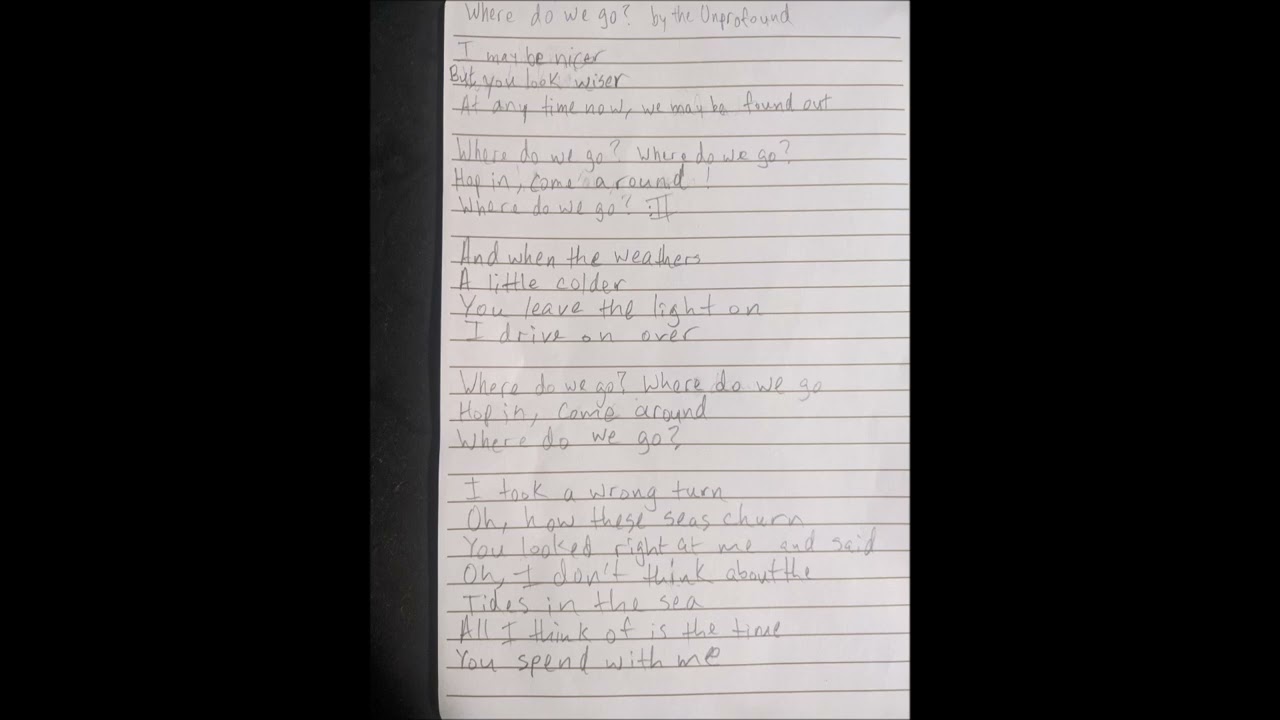 Where do we go? by the Unprofound
I may be nicer
But you look wiser
At any time now, we may be found out
Where do we go? Where do we go?
Hop in, come around!
Where do we go? :||
And when the weathers
A little colder
You leave the light on
I drive on over
Where do we go? Where do we go
Hop in, come around
Where do we go?
I took a wrong turn
Oh, how these seas churn
You looked right at me and said
Oh, I don't think about the
Tides in the sea
All I think of is the time
You spend with me